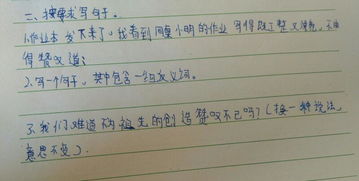 二、按要求写句子。
1.作业本发下来了。我看到同桌小明的作业写得既工整又清秀,不由
得赞叹道:
2.写一个句子,其中包含一组反义词。
3.我们难道不为祖先的创造赞叹不已吗?(换一种说法,
意思不变)。